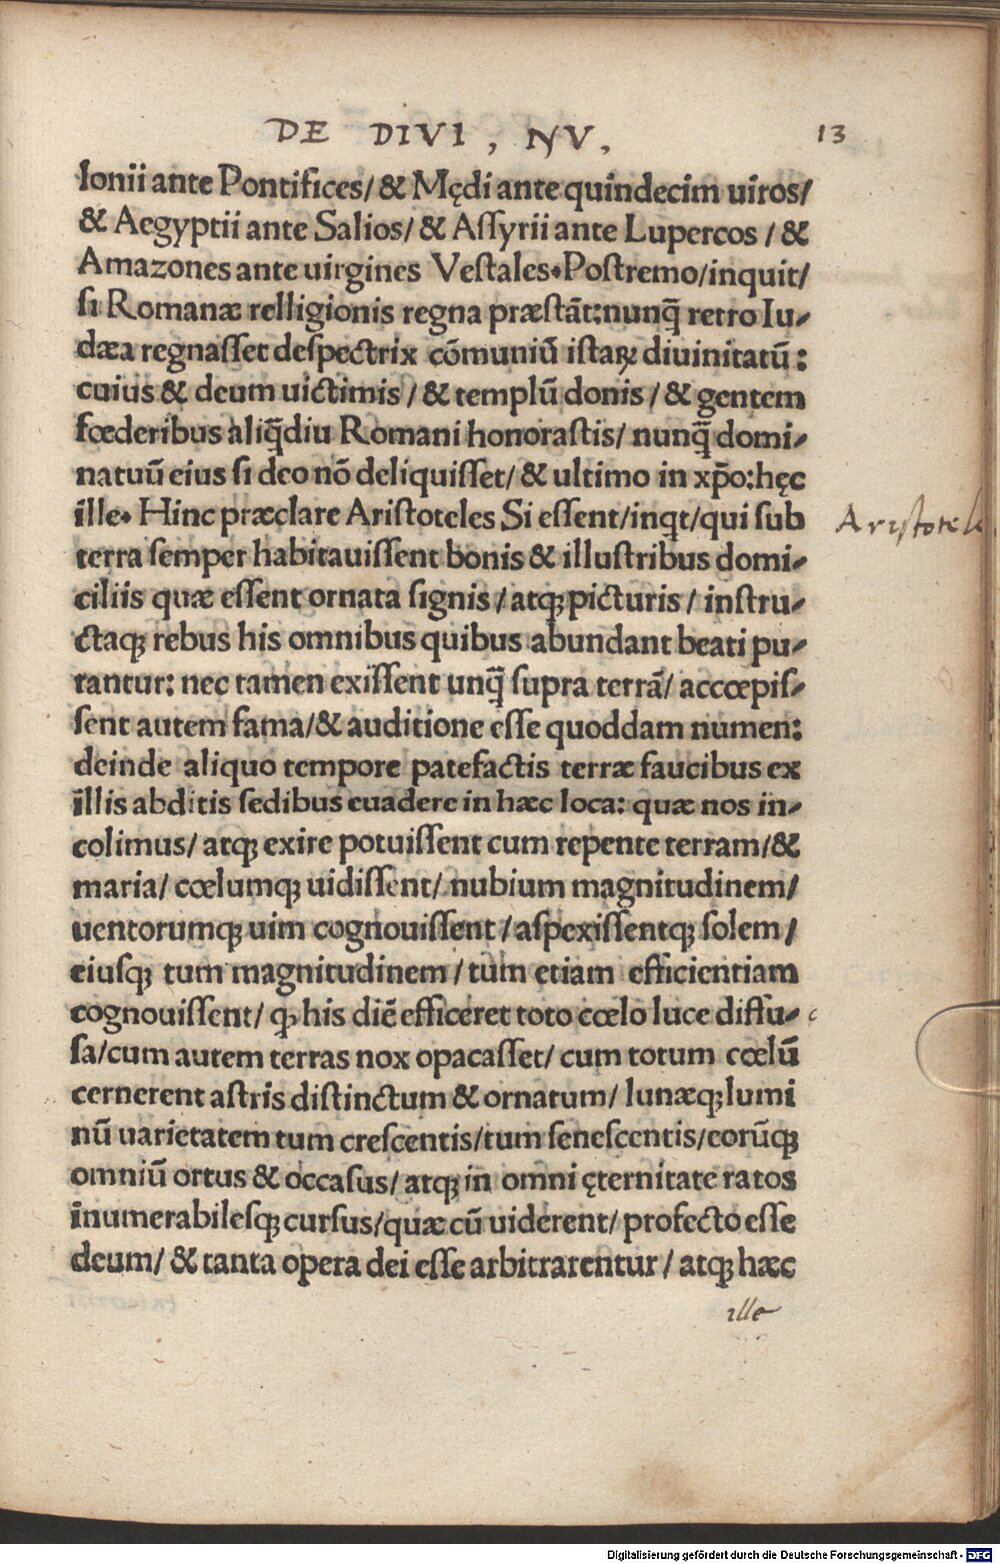 DE DIVI, NV, 13
lonii ante Pontifices/ & Mędi ante quindecim uiros/
& Aegyptii ante Salios/ & Aſſyrii ante Lupercos / &
Amazones ante uirgines Veſtales. Poſtremo/inquit/
ſi Romanæ relligionis regna præſtāt:nunq̃ retro Iu-
dæa regnaſſet deſpectrix cōmuniū iſtaꝝ diuinitatū:
cuius & deum uictimis / & templū donis / & gentem
fœderibus aliq̃diu Romani honoraſtis/ nunq̃ domi-
natuū eius ſi deo nō deliquiſſet/ & ultimo in xp̄o:hęc
ille. Hinc præclare Ariſtoteles Si eſſent/inqt/qui ſub
Aristotele
terra ſemper habitauiſſent bonis & illuſtribus domi-
ciliis quæ eſſent ornata ſignis / atqꝫ picturis / inſtru-
ctaqꝫ rebus his omnibus quibus abundant beati pu-
tantur: nec tamen exiſſent unq̃ ſupra terrā/ accœpiſ-
ſent autem fama/& auditione eſſe quoddam numen:
deinde aliquo tempore patefactis terræ faucibus ex
illis abditis ſedibus euadere in hæc loca: quæ nos in-
colimus/ atqꝫ exire potuiſſent cum repente terram/&
maria/ cœlumqꝫ uidiſſent/ nubium magnitudinem/
uentorumqꝫ uim cognouiſſent / aſpexiſſentqꝫ ſolem /
eiuſqꝫ tum magnitudinem / tum etiam efficientiam
cognouiſſent/ ꝙ his diē efficeret toto cœlo luce diffu-
ſa/cum autem terras nox opacaſſet/ cum totum cœlū
cernerent aſtris diſtinctum & ornatum/ lunæqꝫ lumi
nū uarietatem tum creſcentis/tum ſeneſcentis/eorūqꝫ
omniū ortus & occaſus/ atqꝫ in omni ęternitate ratos
inumerabileſqꝫ curſus/quæ cū uiderent/ profecto eſſe
deum/ & tanta opera dei eſſe arbitrarentur / atqꝫ hæc
ille
Digitalisierung gefördert durch die Deutsche Forschungsgemeinschaft - DFG